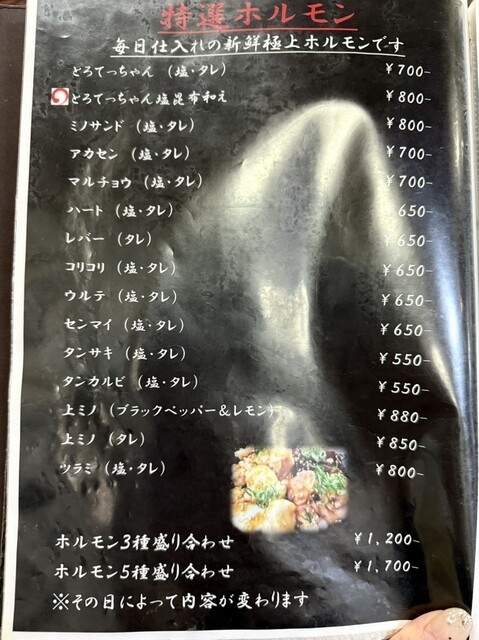 特選ホルモン
毎日仕入れの新鮮極上ホルモンです
とろてっちゃん (塩・タレ) ¥700-
とろてっちゃん塩昆布和え ¥800-
ミノサンド (塩・タレ) ¥800-
アカセン (塩・タレ) ¥700-
マルチョウ (塩・タレ) ¥700-
ハート (塩・タレ) 650-
レバー (タレ) ¥650-
コリコリ (塩・タレ) ¥650-
ウルテ (塩・タレ) ¥650-
センマイ (塩・タレ) ¥650-
タンサキ (塩・タレ) ¥550-
タンカルビ (塩・タレ) ¥550-
上ミノ (ブラックペッパー&レモン) ¥880-
上ミノ (タレ) ¥850-
ツラミ (塩・タレ) ¥800-
ホルモン3種盛り合わせ ¥1,200-
ホルモン5種盛り合わせ ¥1,700-
※その日によって内容が変わります